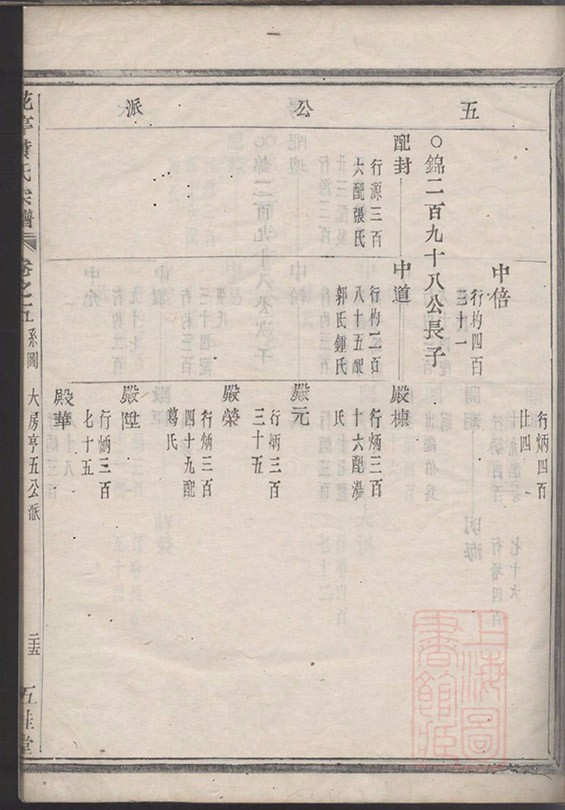 五公派
行炳四百
廿四
中倍
行杓四百
三十一
○錦二百九十八公長子
配封
行源三百
六配張氏
中道
行杓二百
八十五配
郭氏鍾氏
殿標
行炳三百
十六配湯
氏
殿元
行炳三百
三十五
殿榮
行炳三百
四十九配
葛氏
殿陞
行炳三百
殿華
七十五
花亭黃氏宗譜
卷之五
系圖
大房亨五公派
三十五
五桂堂
上海圖書館藏